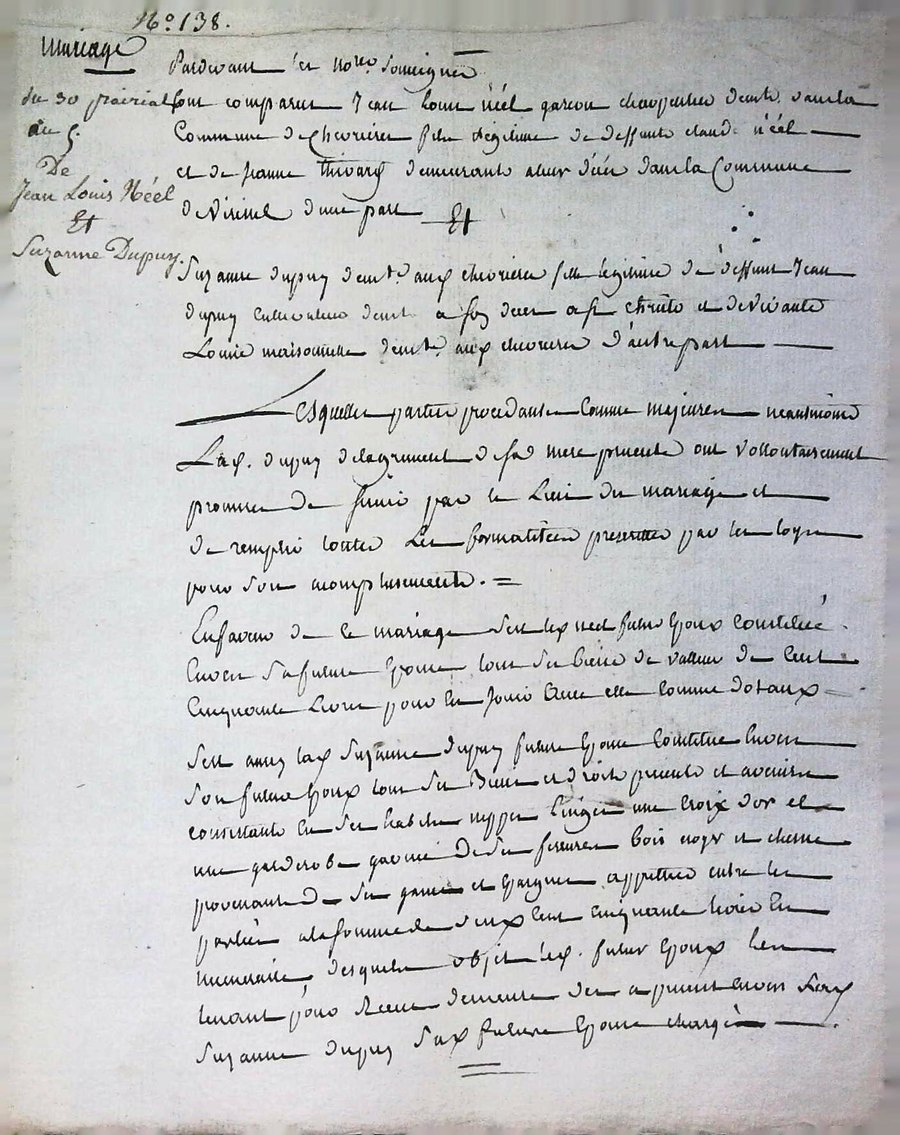 No. 138.
Mariage
du 30 prairial
an 5.
De
Jean Louis Néel
Et
Suzanne Dupuy.
Pardevant les nores Soussignés
sont comparus Jean Louis Néel garcon charpentier demt. dans la
Commune de Chevrieres fils légitime de deffunts claude Néel
et de Jeanne Thivard demeurante dans la Commune
de Virieu d'une part Et
Suzanne dupuy demte. aux chevrieres fille légitime de deffunt Jean
dupuy cultivateur et de vivante
Louise maisonnette demte. aux chevrieres d'autre part
Lesquelles parties procedantes comme majeures neantmoins
Lad. dupuy de lagrement de sad. mere presente ont vollontairement
promis de sunir par le Lien du mariage et
de remplir toutes Les formalitées prescrittes par les loys
pour son acomplissement. =
En faveur de ce mariage led. neel futur Epoux constitué
Envers sa future Epouse tous ses biens de valleur de Cent
Cinquante Livres pour en jouir comme dotaux
lad. Suzanne dupuy future Epouse Constitue Envers
son futur Epoux tous ses Biens et droits presents et avenirs
consistants En ses habits nippes linges une Croix d'or et
une garderobe garnie de ses ferures bois noyr et chesne
provenant de ses gains et Epargnes appretiés entre les
parties a la somme de deux Cent Cinquante livres En
numeraire, desquels objets led. futur Epoux
tenant pour demeure des a present Envers Lad.
Suzanne dupuy Sad. future Epouse chargé